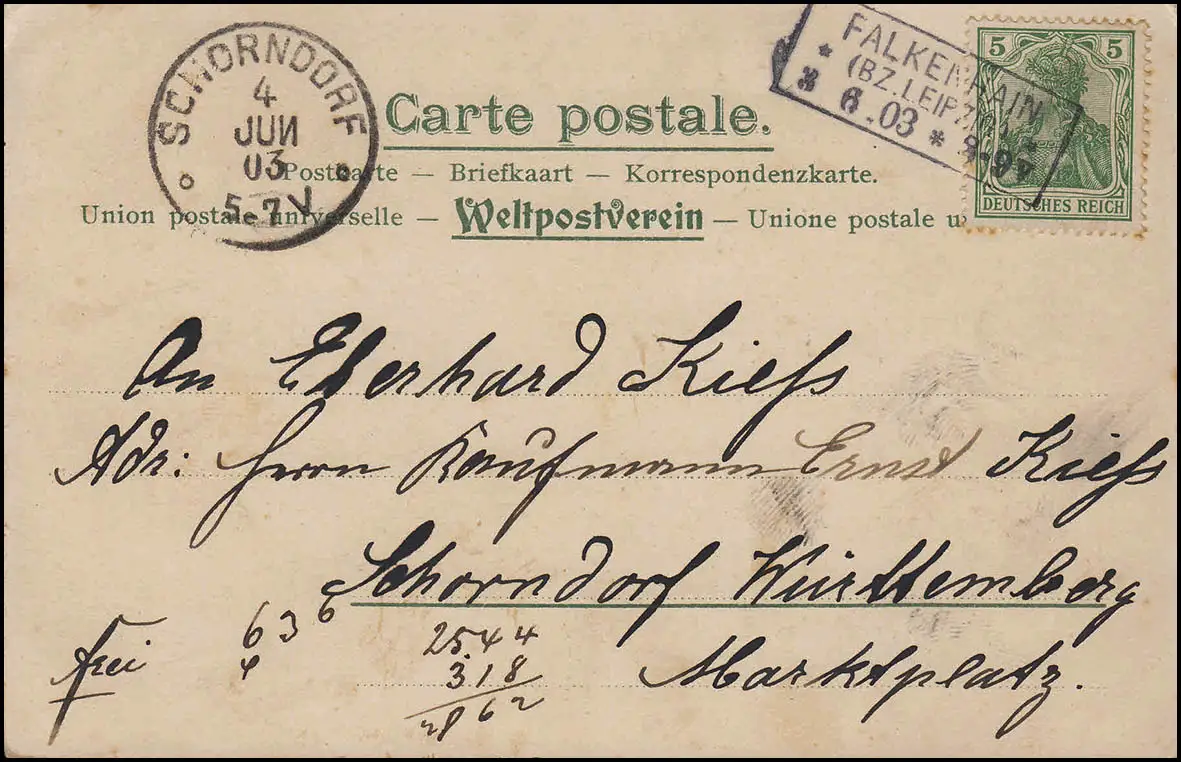 SCHORNDORF
4
JUN
03
5-7 V
FALKENHAIN
(BZ. LEIPZIG)
* 3 6.03 *
5 5
DEUTSCHES REICH
Carte postale.
Postcarte — Briefkaart — Korrespondenzkarte.
Union postale universelle — Weltpostverein — Unione postale u
An Eberhard Kiefs
Adr: Herrn Kaufmann Ernst Kiefs
Schorndorf Württemberg
Marktplatz.
frei
636
4
25.44
3.18
28 62